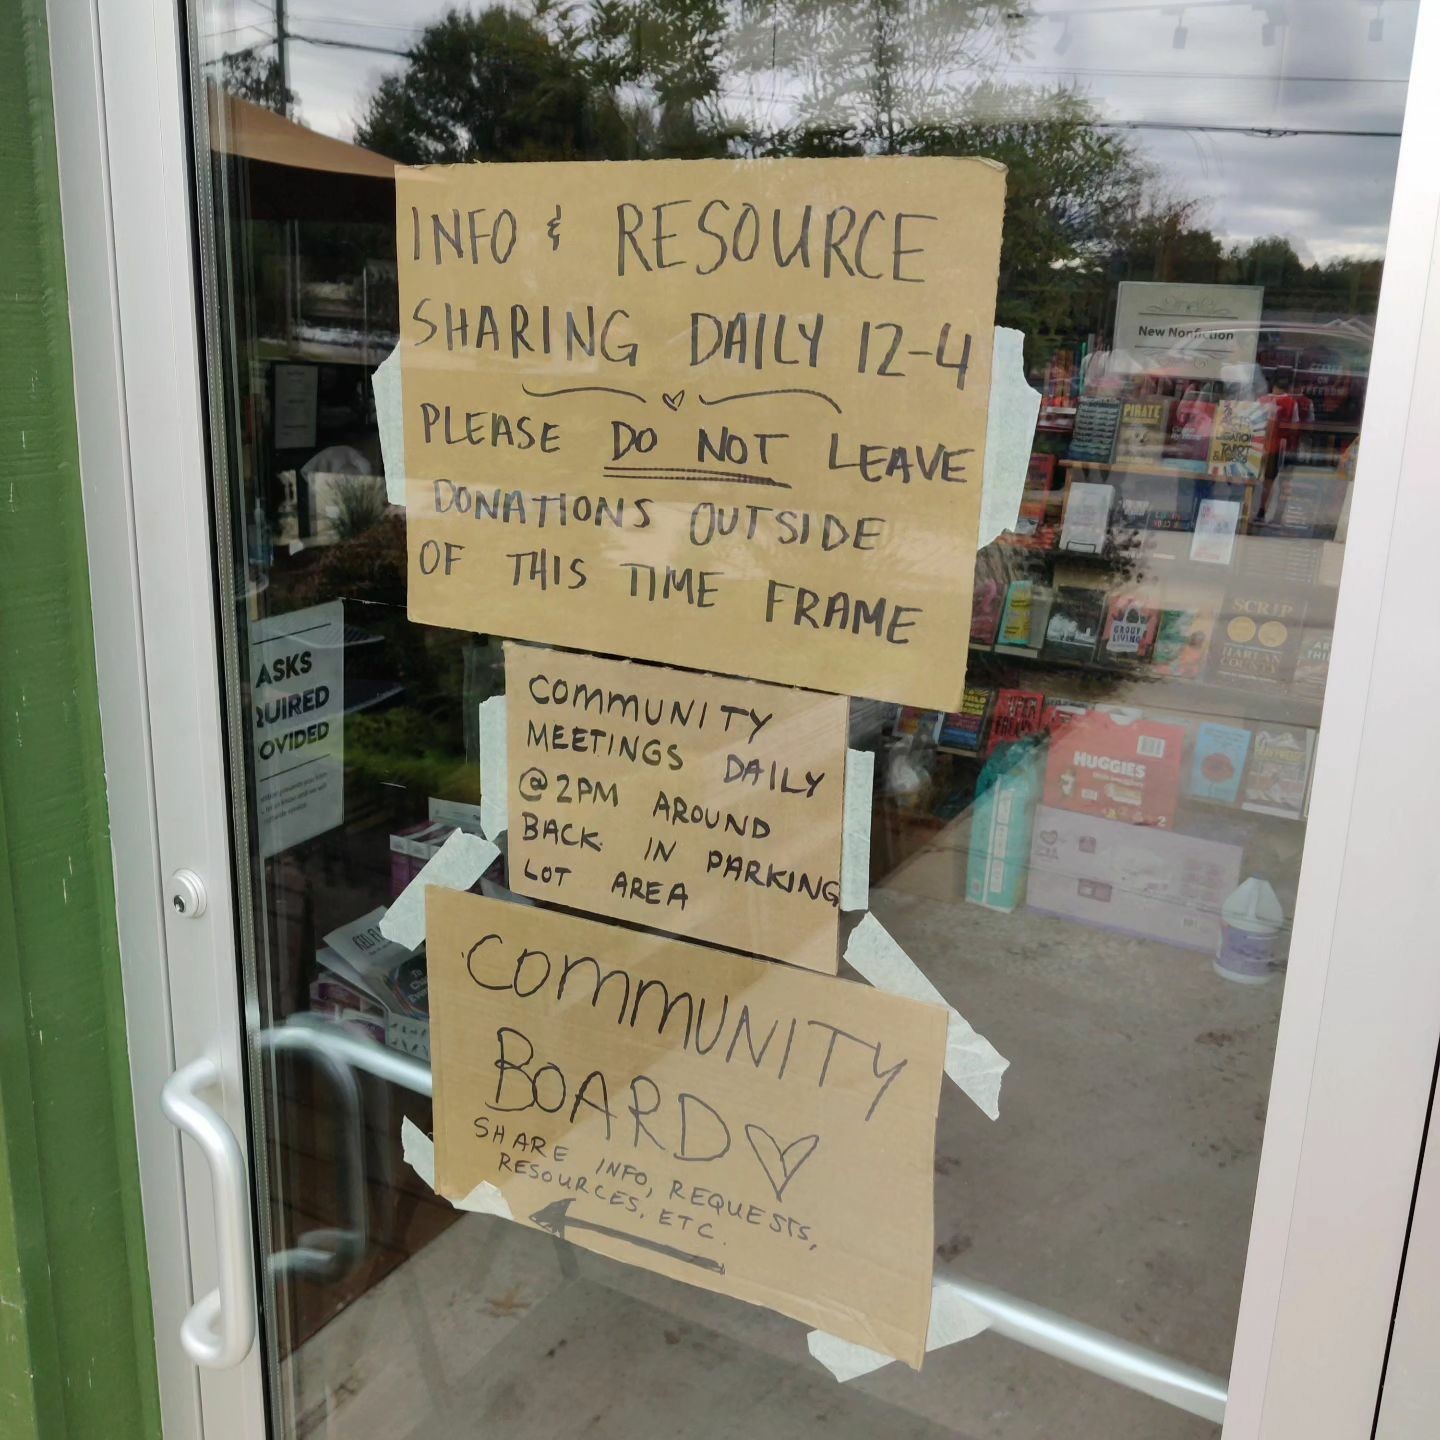 INFO & RESOURCE
SHARING DAILY 12-4
PLEASE DO NOT LEAVE
DONATIONS OUTSIDE
OF THIS TIME FRAME
COMMUNITY
MEETINGS DAILY
@2PM AROUND
BACK IN PARKING
LOT AREA
COMMUNITY
BOARD
SHARE INFO, REQUESTS,
RESOURCES, ETC.
New Nonfiction
PIRATE
GROUP
LIVING
HARLAN
HUGGIES
ASKS
QUIRED
OVIDED